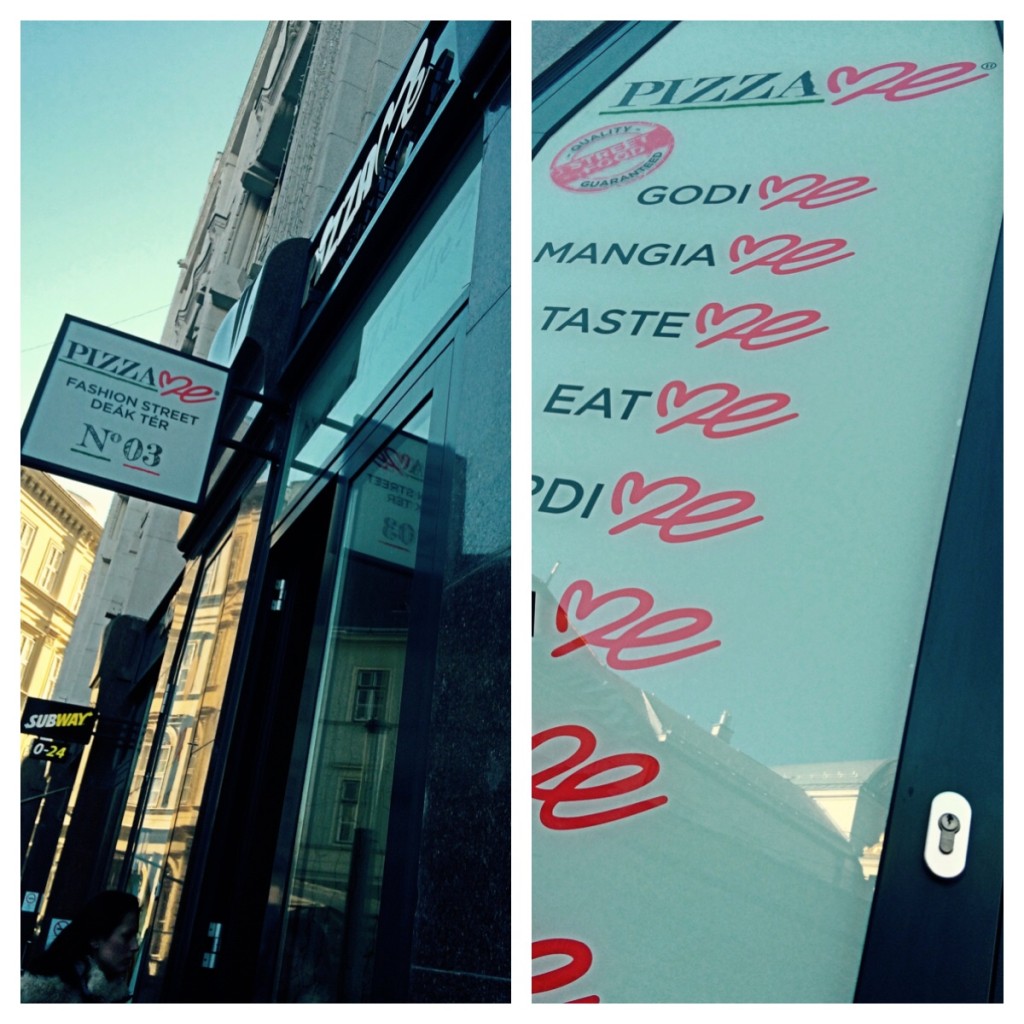 PIZZA ME
PIZZA ME®
FASHION STREET
DEÁK TÉR
Nº 03
SUBWAY
0-24
PIZZA ME®
- QUALITY -
STREET
FOOD
GUARANTEED
GODI ME
MANGIA ME
TASTE ME
EAT ME
RDI ME
ME
ME